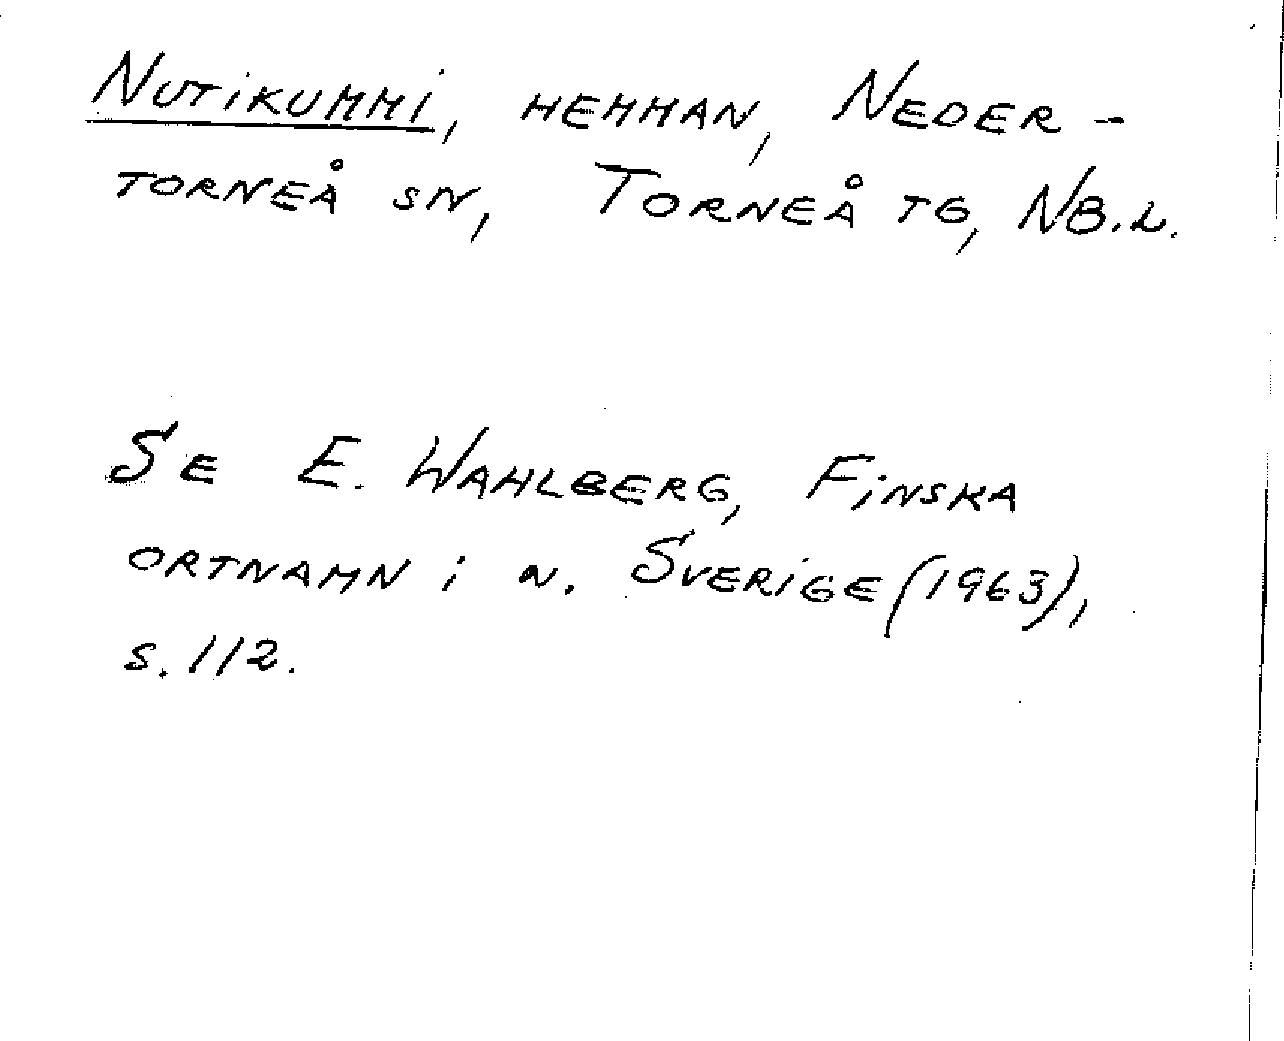 Nutikummi, hemman, Neder-
torneå sn, Torneå tg, Nb.l.
Se E. Wahlberg, Finska
ortnamn i n. Sverige (1963),
s. 112.